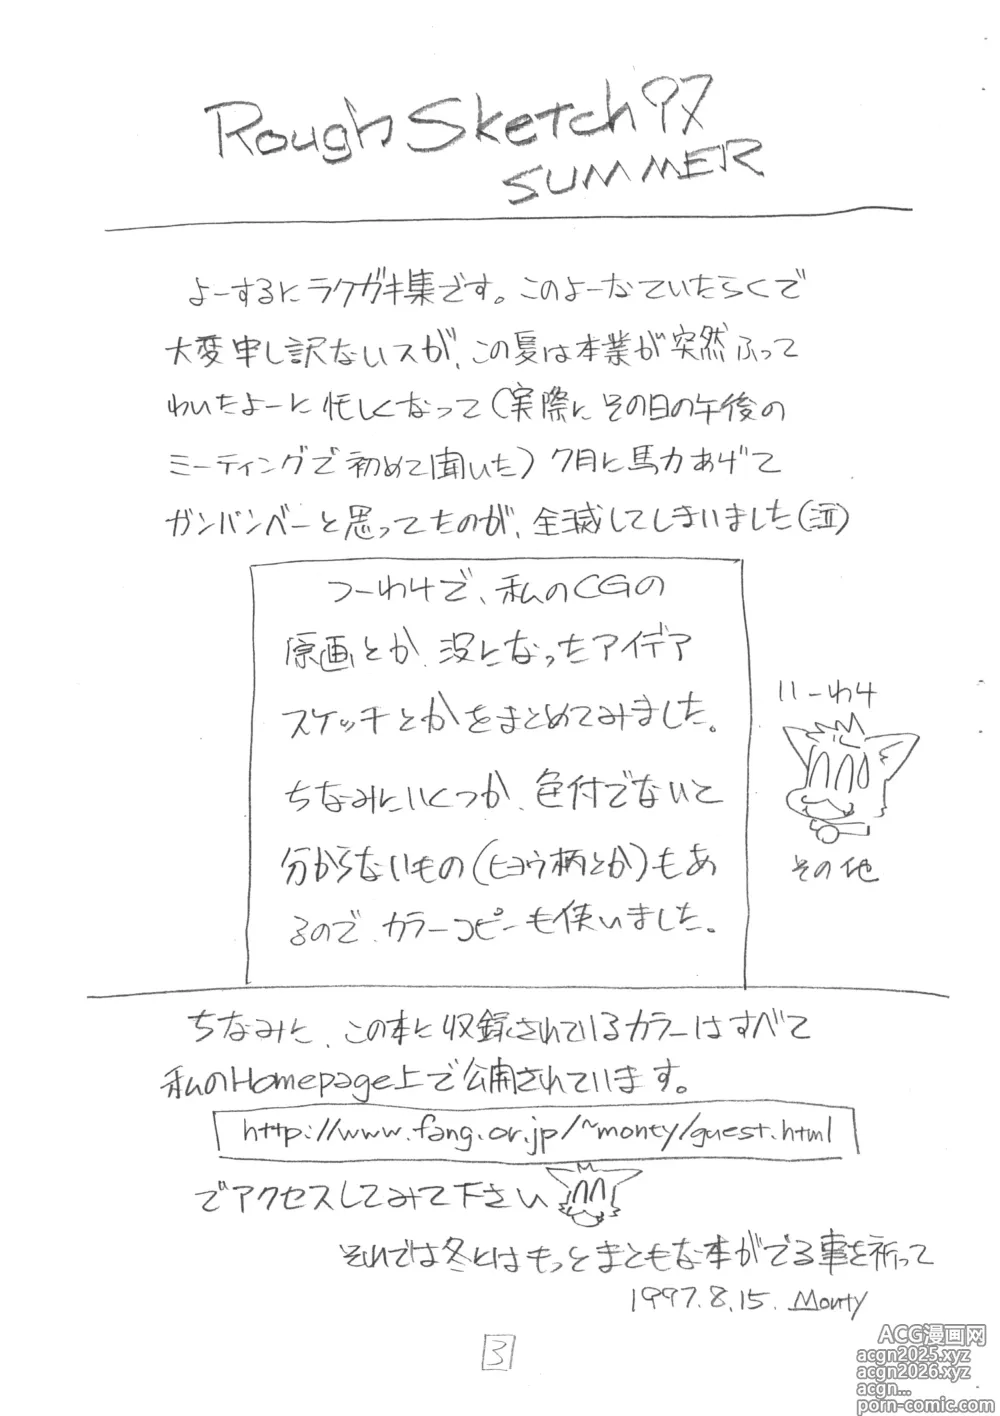 Rough Sketch 97
SUMMER
よーするにラクガキ集です。このよーなていたらくで
大変申し訳ないスが、この夏は本業が突然ふって
わいたよーに忙しくなって(実際にその日の午後の
ミーティングで初めて聞いた)7月に馬力あげて
ガンバンベーと思ってたのが、全滅してしまいました(泣)
つーわけで、私のCGの
原画とか、没になったアイデア
スケッチとかをまとめてみました。
ちなみにいくつか、色付でないと
分からないもの(ヒョウ柄とか)もあ
るので、カラーコピーも使いました。
いーわけ
その他
ちなみに、この本に収録されているカラーはすべて
私のHomepage上で公開されています。
http://www.fang.or.jp/~monty/guest.html
でアクセスしてみて下さい
それでは冬にはもっとまともな本がでる事を祈って
1997.8.15. Monty
3
ACG漫画网
acgn2025.xyz
acgn2026.xyz
acgn...
porn-comic.com